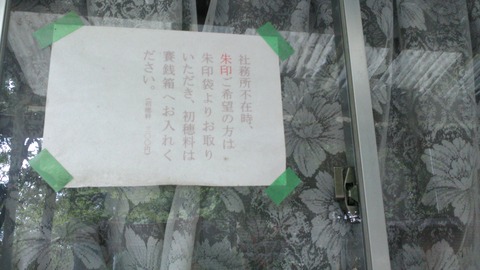 社務所不在時、
朱印ご希望の方は。
朱印袋よりお取り
いただき、初穂料は
賽銭箱へお入れく
ださい。